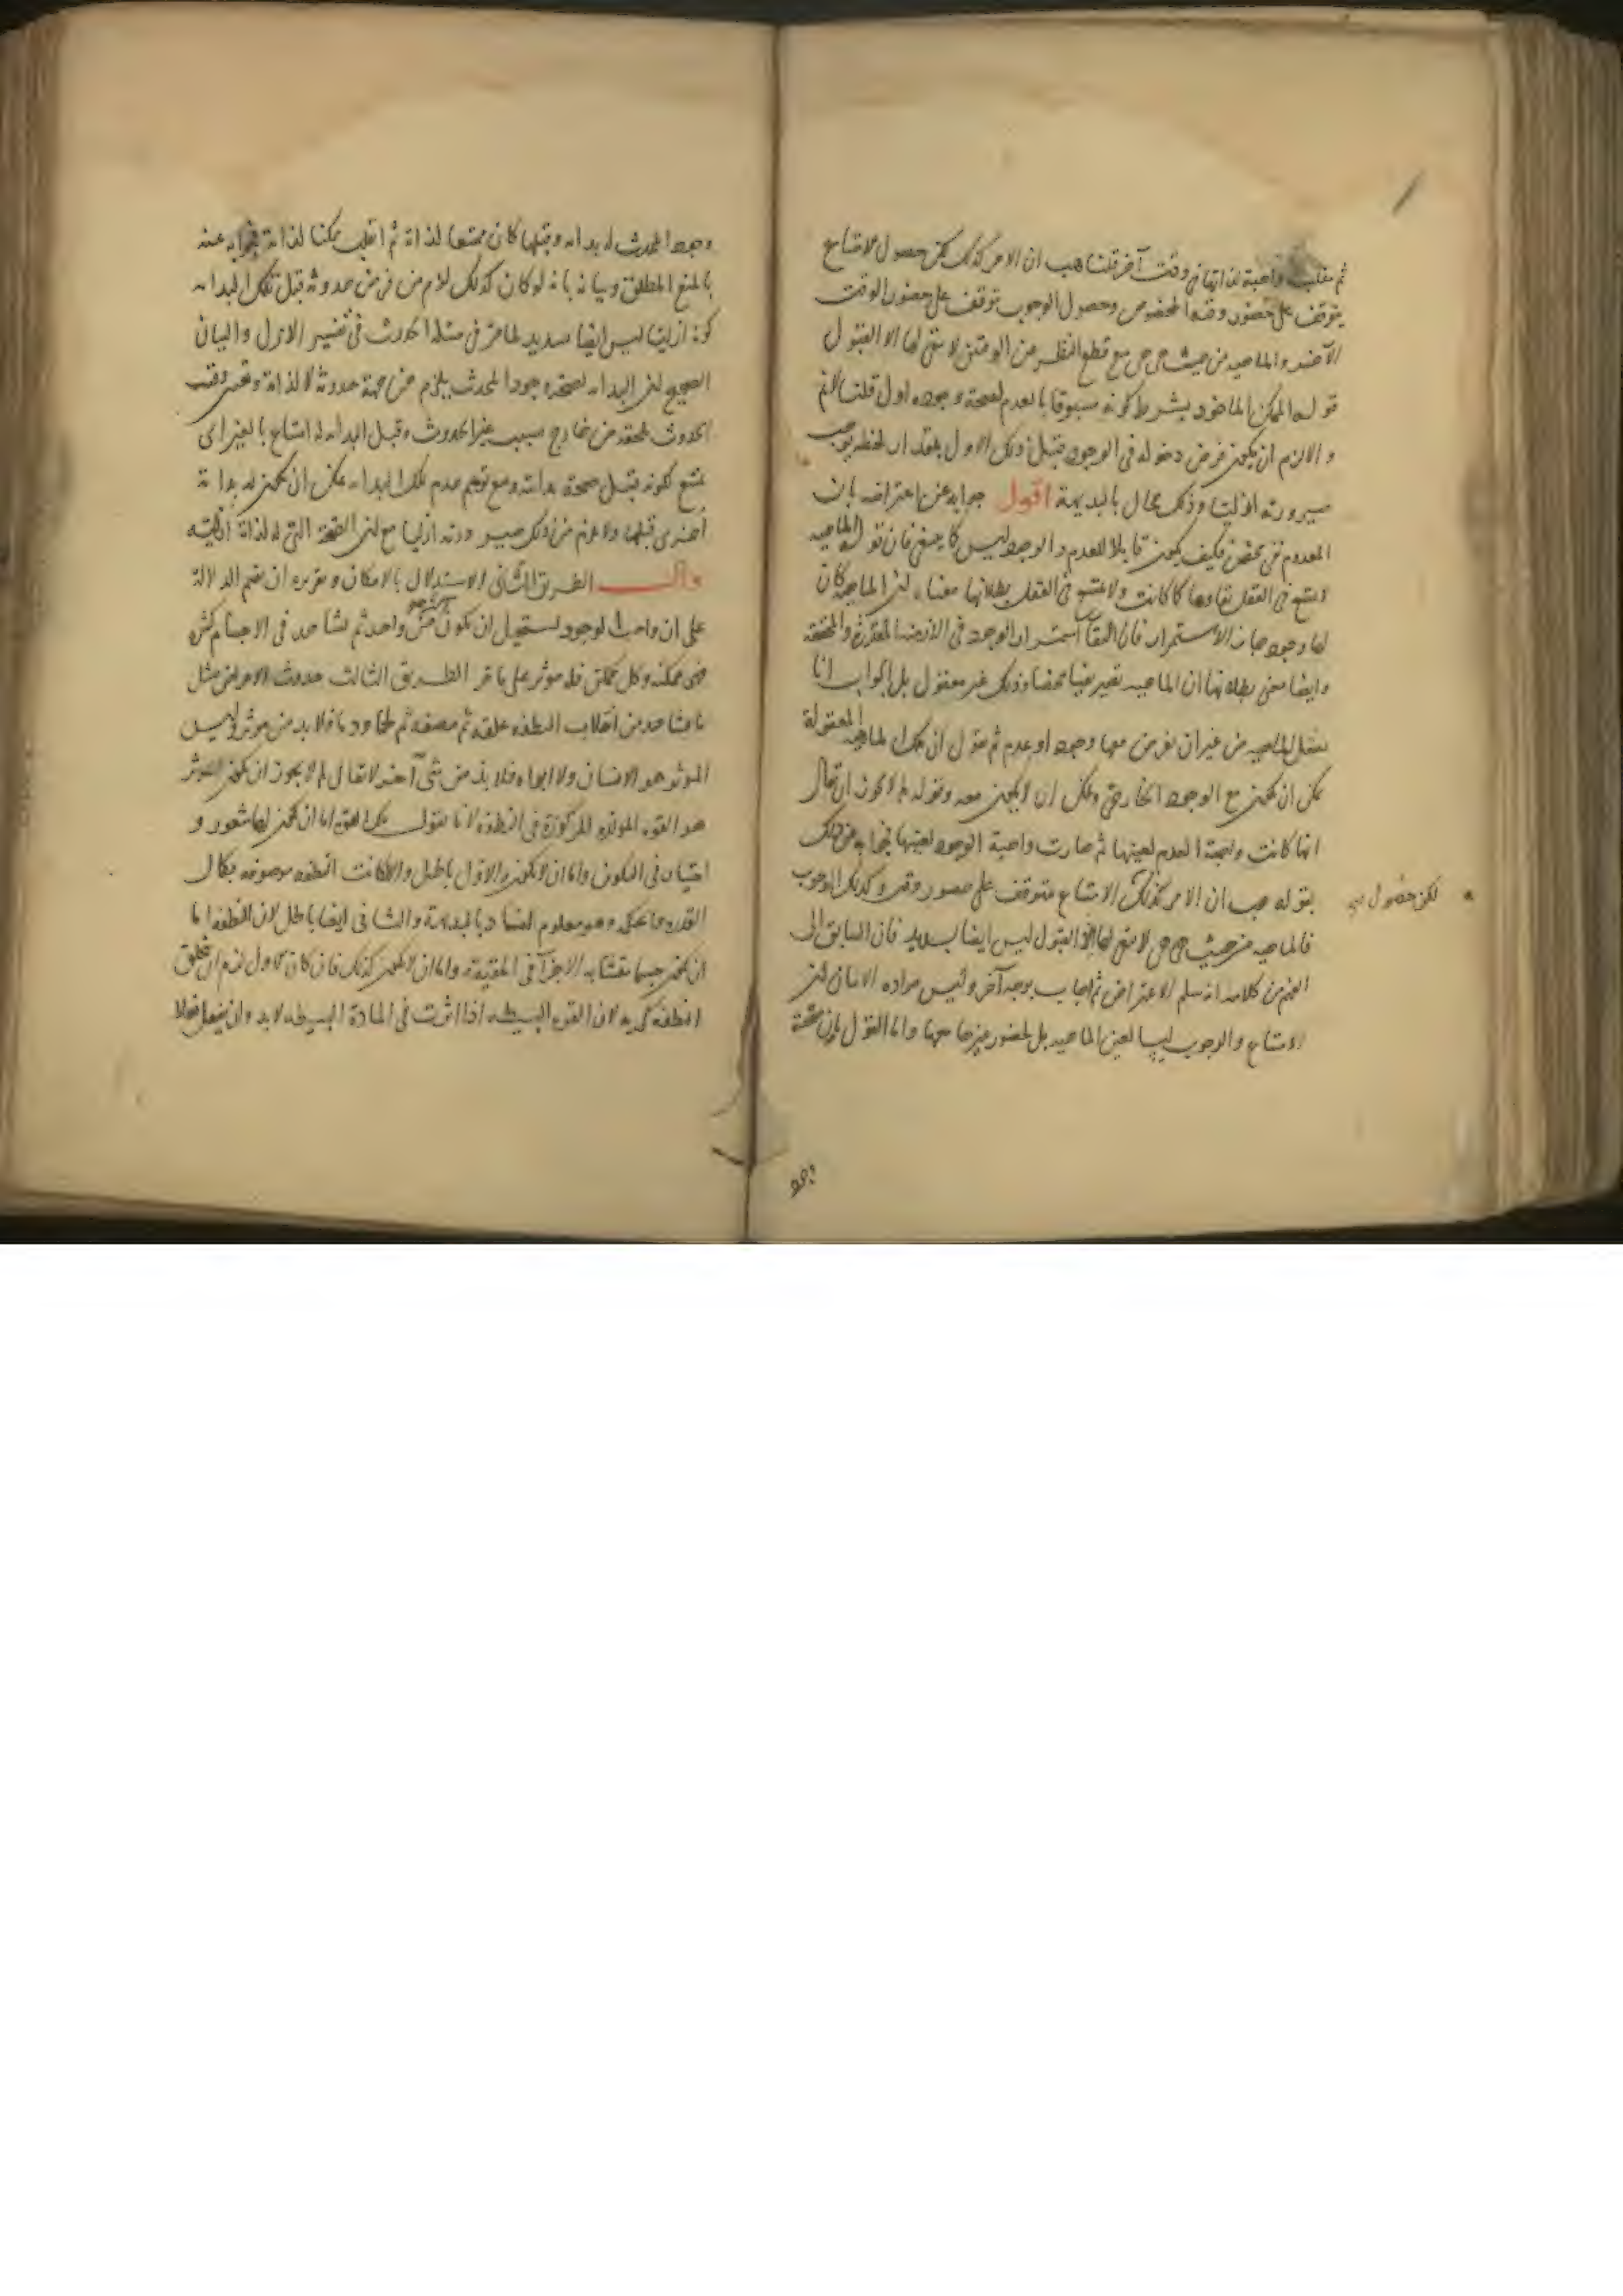 ثم تنقلب واجبة لذاتها في وقت آخر قلنا هب ان الامر كذلك لكن حصول الامتناع
يتوقف على حضور وقته المخصوص وحصول الوجوب يتوقف على حضور الوقت
الآخر والماهيه من حيث هي هي مع قطع النظر عن الوقتين لا يبقى لها الا القبول
قوله الممكن الماخوذ بشرط كونه مسبوقا بالعدم لصحة وجوده اول قلنا لا نم
والا لزم ان يكون فرض دخوله في الوجود قبل ذلك الاول بمقدار لحظه يوجب
صيرورته ازليا وذلك محال بالبديهة اقول جوابه عن اعتراضه بان
المعدوم نفي محض فكيف يكون قابلا للعدم والوجود ليس كما ينبغي فان قوله الماهيه
لا يمتنع في العقل بقاوها كما كانت ولا يمتنع في العقل بطلانها معناه ان الماهية كان
لها وجود جاز الاستمرار فان البقا استمرار الوجود في الازمنة المقدرة والمحققة
وايضا معنى بطلانها ان الماهيه تصير نفيا محضا وذلك غير معقول بل الجواب انا
نعقل الماهيه من غير ان نفرض معها وجود او عدم ثم نقول ان تلك الماهية المعقولة
يمكن ان يكون مع الوجود الخارجي ويمكن ان لا يكون معه وقوله لم لا يجوز ان يقال
انها كانت واجبة العدم لعينها ثم صارت واجبة الوجود لعينها فجوابه عن ذلك
بقوله هب ان الامر كذلك الامتناع متوقف على حضور وقت وكذلك الوجوب
لكن حصول
فالماهيه من حيث هي هي لا يبقى لها الا القبول ليس ايضا بسديد فان السابق الى
الفهم من كلامه انه سلم الاعتراض ثم اجاب بوجه آخر وليس مراده الا بيان ان
الامتناع والوجوب ليسا لعين الماهيه بل لحضور غيرها معها واما القول بان صحة
وجود
وجود المحدث له بداية وقبلها كان ممتنعا لذاته ثم انقلب ممكنا لذاته فجوابه عنه
بالمنع المطلق وبيانه بانه لو كان كذلك للزم من فرض حدوثه قبل تلك البداية
كونه ازليا ليس ايضا بسديد لما مر في مسئلة الحدوث في تفسير الازل والبيان
الصحيح ان البداية لصحة وجود المحدث يلزم من جهة حدوثه لا لذاته
الحدوث لحقه من خارج بسبب غير الحدوث وقبل البداية له امتناع بالغير اى
يمتنع كونه قبل صحة بدايته ومع توهم عدم تلك البداية يمكن ان يكون له بداية
اخرى قبلها ولا يلزم من ذلك صيرورته ازليا مع ان الصحة التى له لذاته ازليه
قال الطريق الثاني الاستدلال بالامكان وتقريره ان نقيم الدلالة
على ان واجب الوجود يستحيل ان يكون اكثر من واحد ثم نشاهد في الاجسام كثرة
فهي ممكنه وكل ممكن فله موثر على ما مر الطريق الثالث حدوث الاعراض مثل
ما نشاهد من انقلاب النطفه علقه ثم مضغه ثم لحما ودما فلا بد من موثر وليس
الموثر هو الانسان ولا ابواه فلا بد من شى آخر لا يقال لم لا يجوز ان يكون الموثر
هو القوه المولده المركوزة في النطفه لانا نقول تلك القوه اما ان يكون لها شعور و
اختيار في التكوين واما ان لا يكون والاول باطل والا لكانت النطفه موصوفه بكمال
القدره والحكمه وهو معلوم الفساد بالبديهة والثانى ايضا باطل لان النطفه اما
ان يكون جسما متشابه الاجزآ في الحقيقة واما ان لا يكون كذلك فان كان الاول لزم ان يخلق
النطفه كرية لان القوه البسيطه اذا اثرت في المادة البسيطه لا بد وان يفعل فعلا